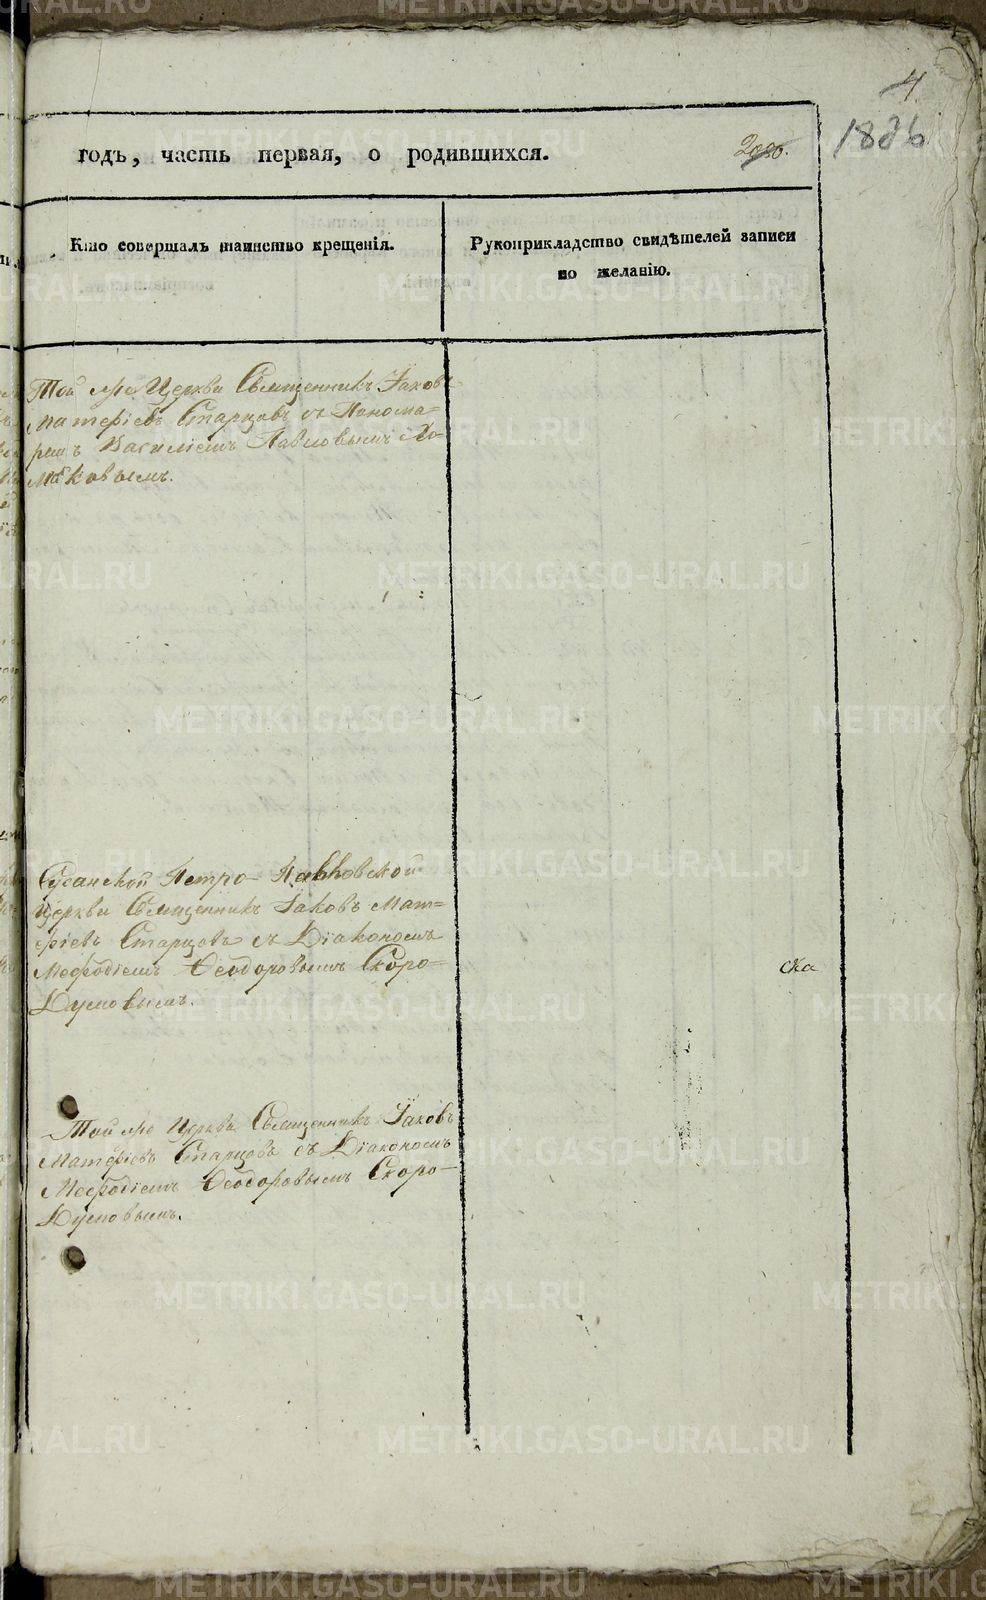 4.
годъ, часть первая, о родившихся.
1836
Кто совершалъ таинство крещенія.
Рукоприкладство свидѣтелей записи
по желанію.
Той же Церкви Священникъ Іаковъ
Матфіевъ Старцовъ съ Понома-
ремъ Василіемъ Павловымъ Хо-
мяковымъ.
Сусанской Петро-Павловской
Церкви Священникъ Іаковъ Мат-
фіевъ Старцовъ съ Діакономъ
Мефодіемъ Ѳеодоровымъ Скоро-
думовымъ.
ска
Той же Церкви Священникъ Іаковъ
Матфіевъ Старцовъ съ Діакономъ
Мефодіемъ Ѳеодоровымъ Скоро-
думовымъ.
METRIKI.GASO-URAL.RU